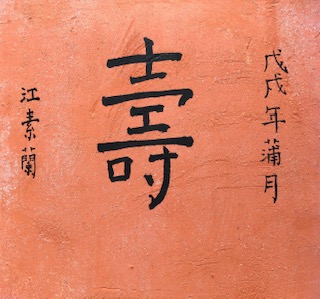 戊戌年蒲月
壽
江素蘭